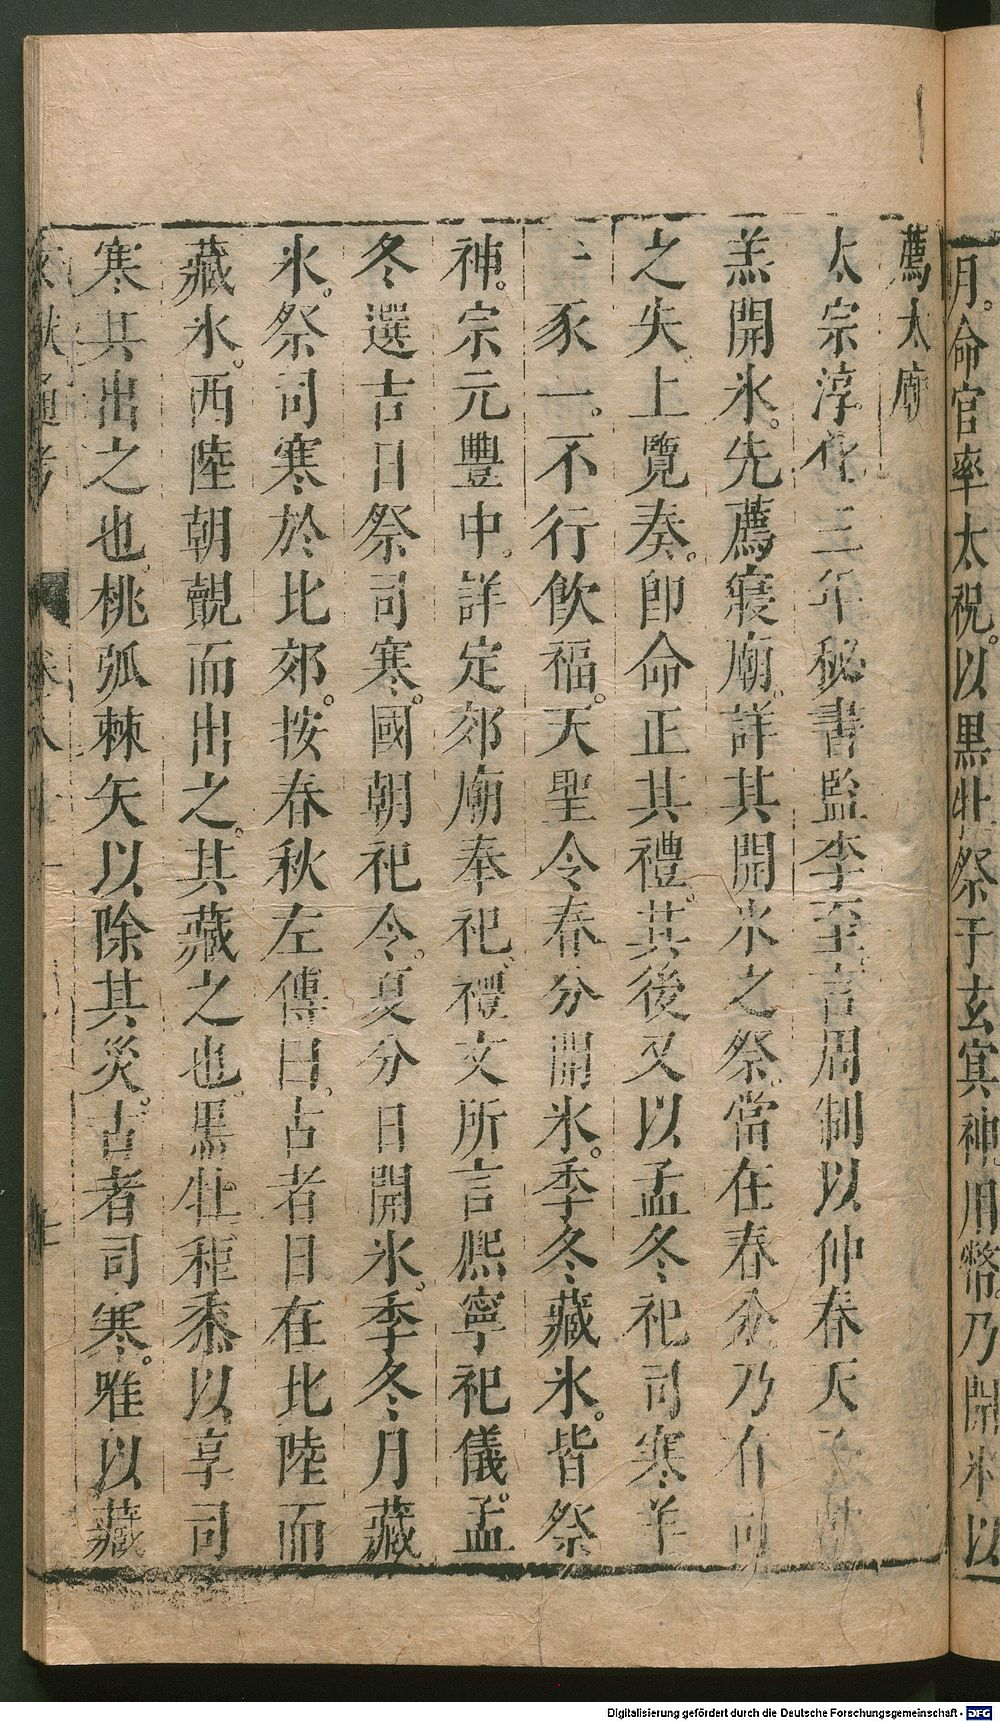 月。命官率太祝。以黒牡祭于玄冥神。用幣。乃開氷以
薦太廟
太宗淳化三年秘書監李至。言周制以仲春天
羔開氷。先薦寢廟。詳其開氷之祭。當在春分乃有司
之失。上覽奏。即命正其禮。其後又以孟冬祀司寒羊
豕一。不行飲福。天聖令春分開氷。季冬藏氷。皆祭
神。宗元豐中。詳定郊廟奉祀。禮文所言熈寧祀儀。孟
冬選吉日祭司寒。國朝祀令。夏分日開氷。季冬月藏
氷。祭司寒於北郊。按春秋左傳曰。古者日在北陸而
藏氷。西陸朝覿而出之。其藏之也。黒牡秬黍以享司
寒其出之也。桃弧棘矢以除其災。古者司寒。唯以藏
文献通考 卷八
Digitalisierung gefördert durch die Deutsche Forschungsgemeinschaft - DFG